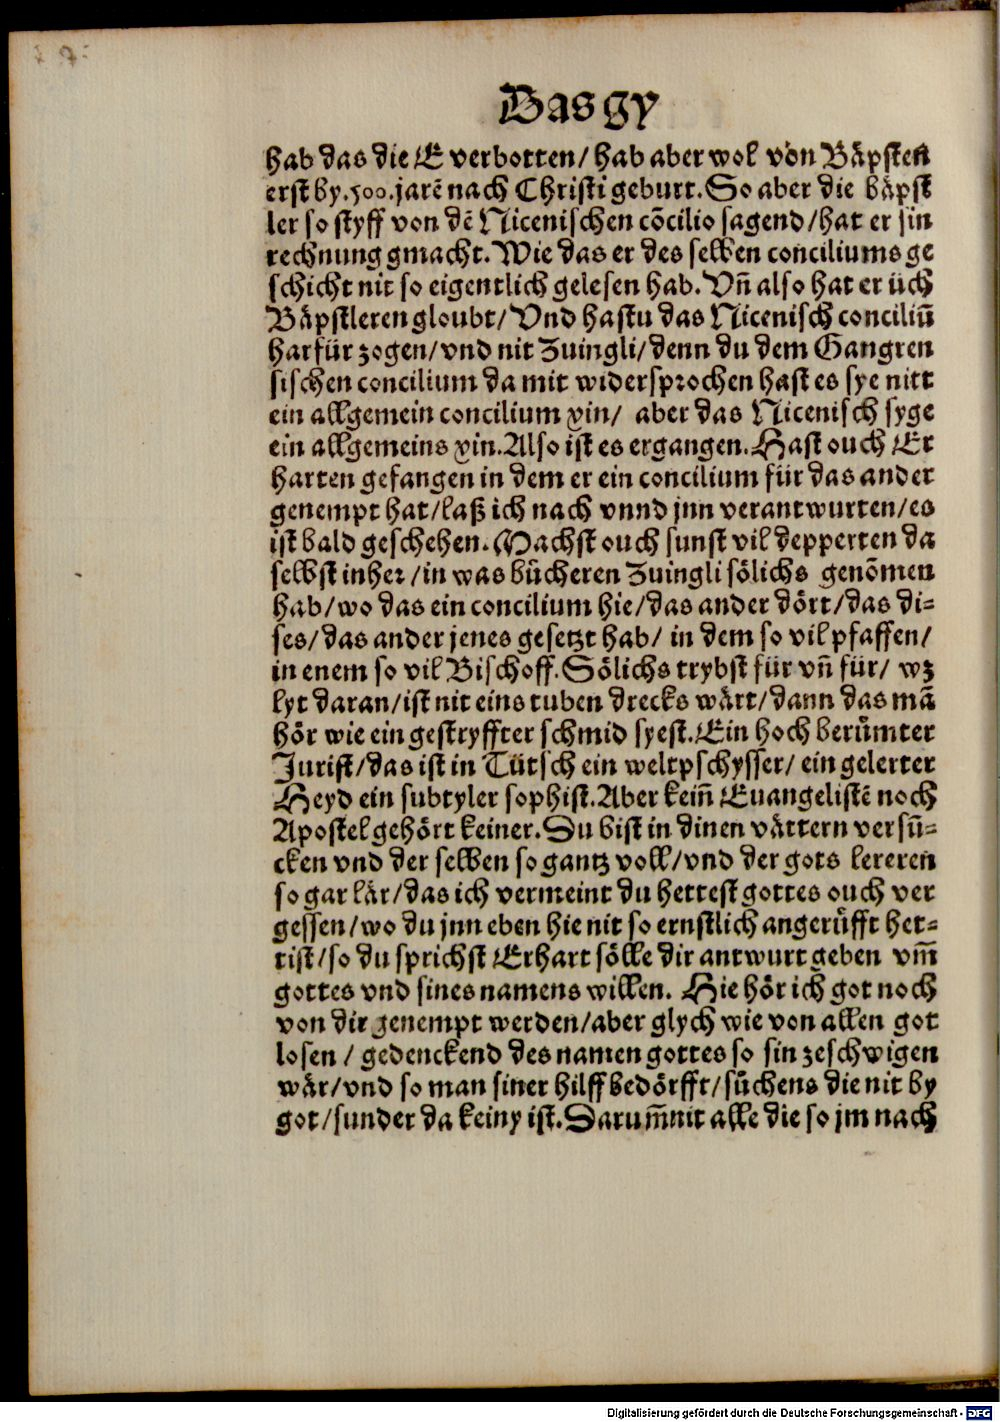 Das gy
hab das die E verbotten/ hab aber wol von Bäpsten
erst by .500. jarē nach Christi geburt. So aber die bäpst
ler so styff von dē Nicenischen cōcilio sagend/hat er sin
rechnung gmacht. Wie das er des selben conciliums ge
schicht nit so eigentlich gelesen hab. Vñ also hat er üch
Bäpstleren gloubt/ Vnd hastu das Nicenisch conciliū
harfür zogen/vnd nit Zuingli/denn du dem Gangren
sischen concilium da mit widersprochen hast es sye nitt
ein allgemein concilium xin/ aber das Nicenisch syge
ein allgemeins xin. Also ist es ergangen. Hast ouch Er
harten gefangen in dem er ein concilium für das ander
genempt hat/laß ich nach vnnd jnn verantwurten/es
ist bald geschehen. Machst ouch sunst vil depperten da
selbst inher/in was bůcheren Zuingli sölichs genōmen
hab/wo das ein concilium hie/das ander dört/das di=
ses/das ander jenes gesetzt hab/ in dem so vil pfaffen/
in enem so vil Bischoff. Sölichs trybst für vñ für/ wz
lyt daran/ist nit eins tuben drecks wärt/dann das mā
hör wie ein gestryffter schmid syest. Ein hoch berůmter
Jurist/das ist in Tütsch ein weltpschysser/ ein gelerter
Heyd ein subtyler sophist. Aber keiñ Euangelistē noch
Apostel gehört keiner. Du bist in dinen vättern versū=
cken vnd der selben so gantz voll/vnd der gots lereren
so gar lär/das ich vermeint du hettest gottes ouch ver
gessen/wo du jnn eben hie nit so ernstlich angerůfft het=
tist/so du sprichst Erhart sölle dir antwurt geben vm̄
gottes vnd sines namens willen. Hie hör ich got noch
von dir genempt werden/aber glych wie von allen got
losen/ gedenckend des namen gottes so sin zeschwigen
wär/vnd so man siner hilff bedörfft/sůchens die nit by
got/sunder da keiny ist. Darum̄ nit alle die so jm nach
Digitalisierung gefördert durch die Deutsche Forschungsgemeinschaft - DFG